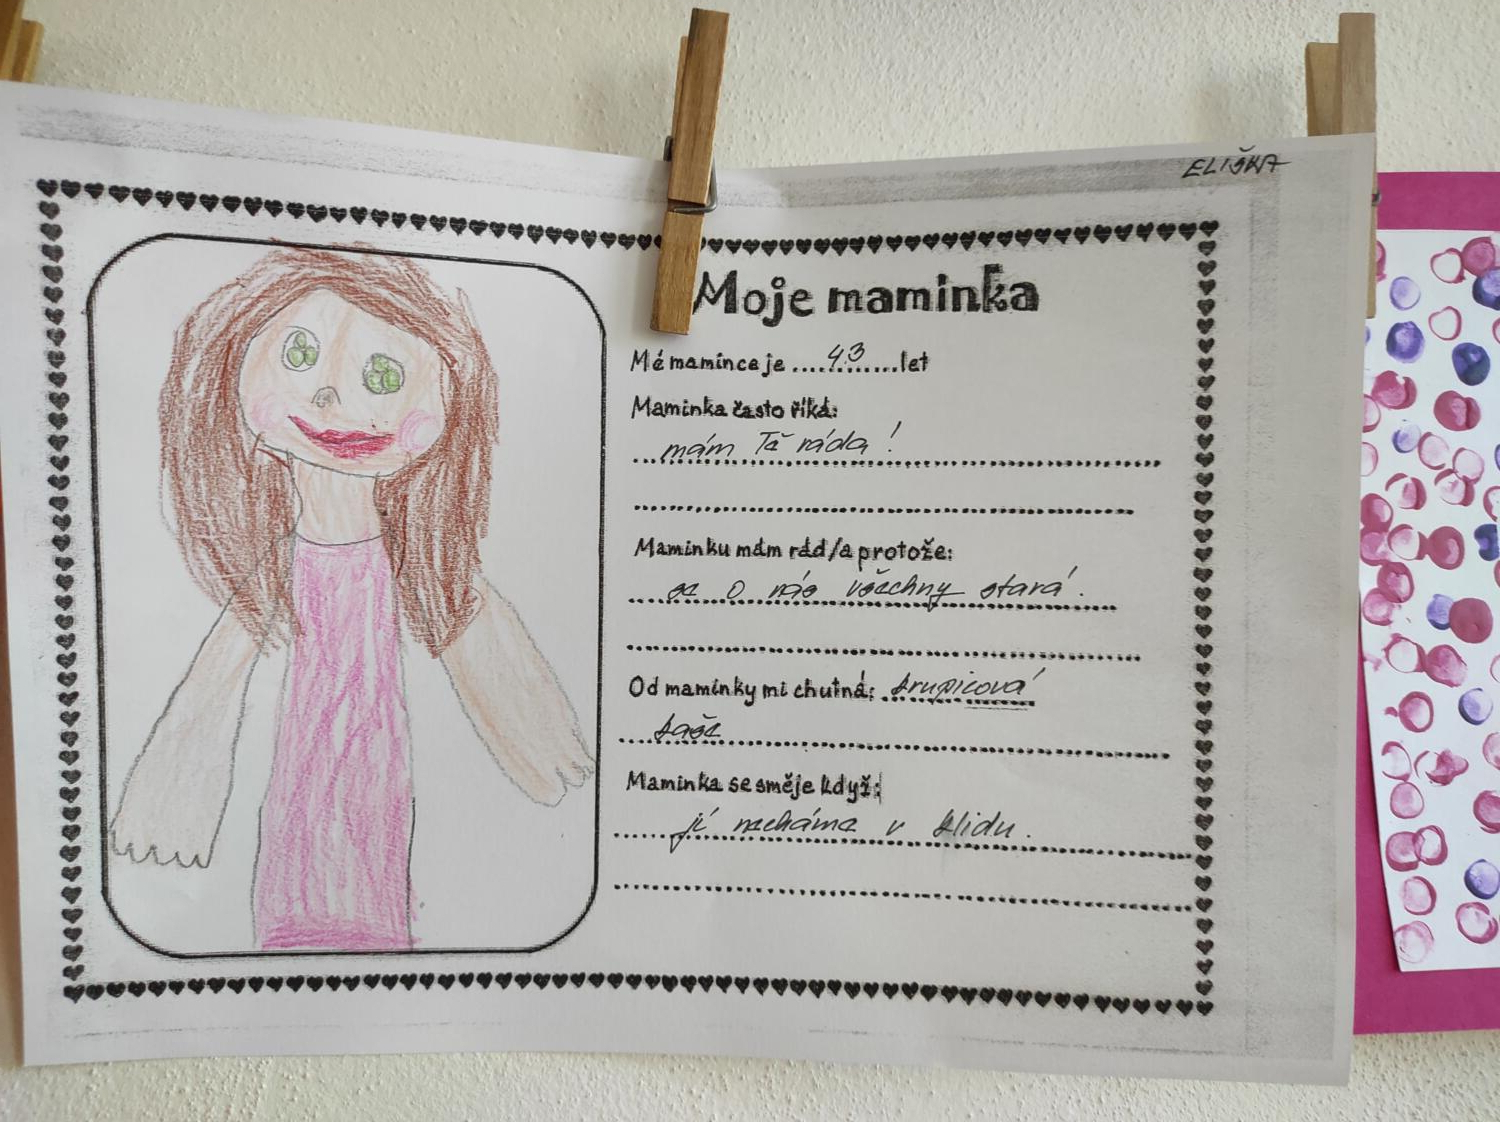 ELIŠKA
Moje maminka
Mé mamince je ....43....let
Maminka často říká:
mám Tě ráda!
Maminku mám rád/a protože:
se o nás všechny stará.
Od maminky mi chutná: krupicová
kaše
Maminka se směje když:
jí necháme v klidu.